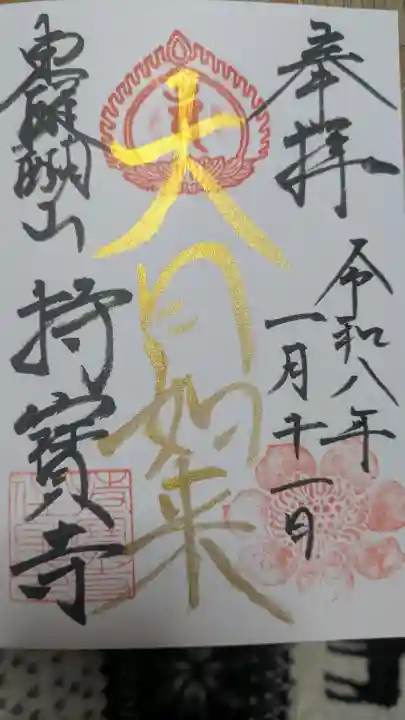 奉拝
令和八年
一月十一日
大日如来
東醍醐山
持寳寺